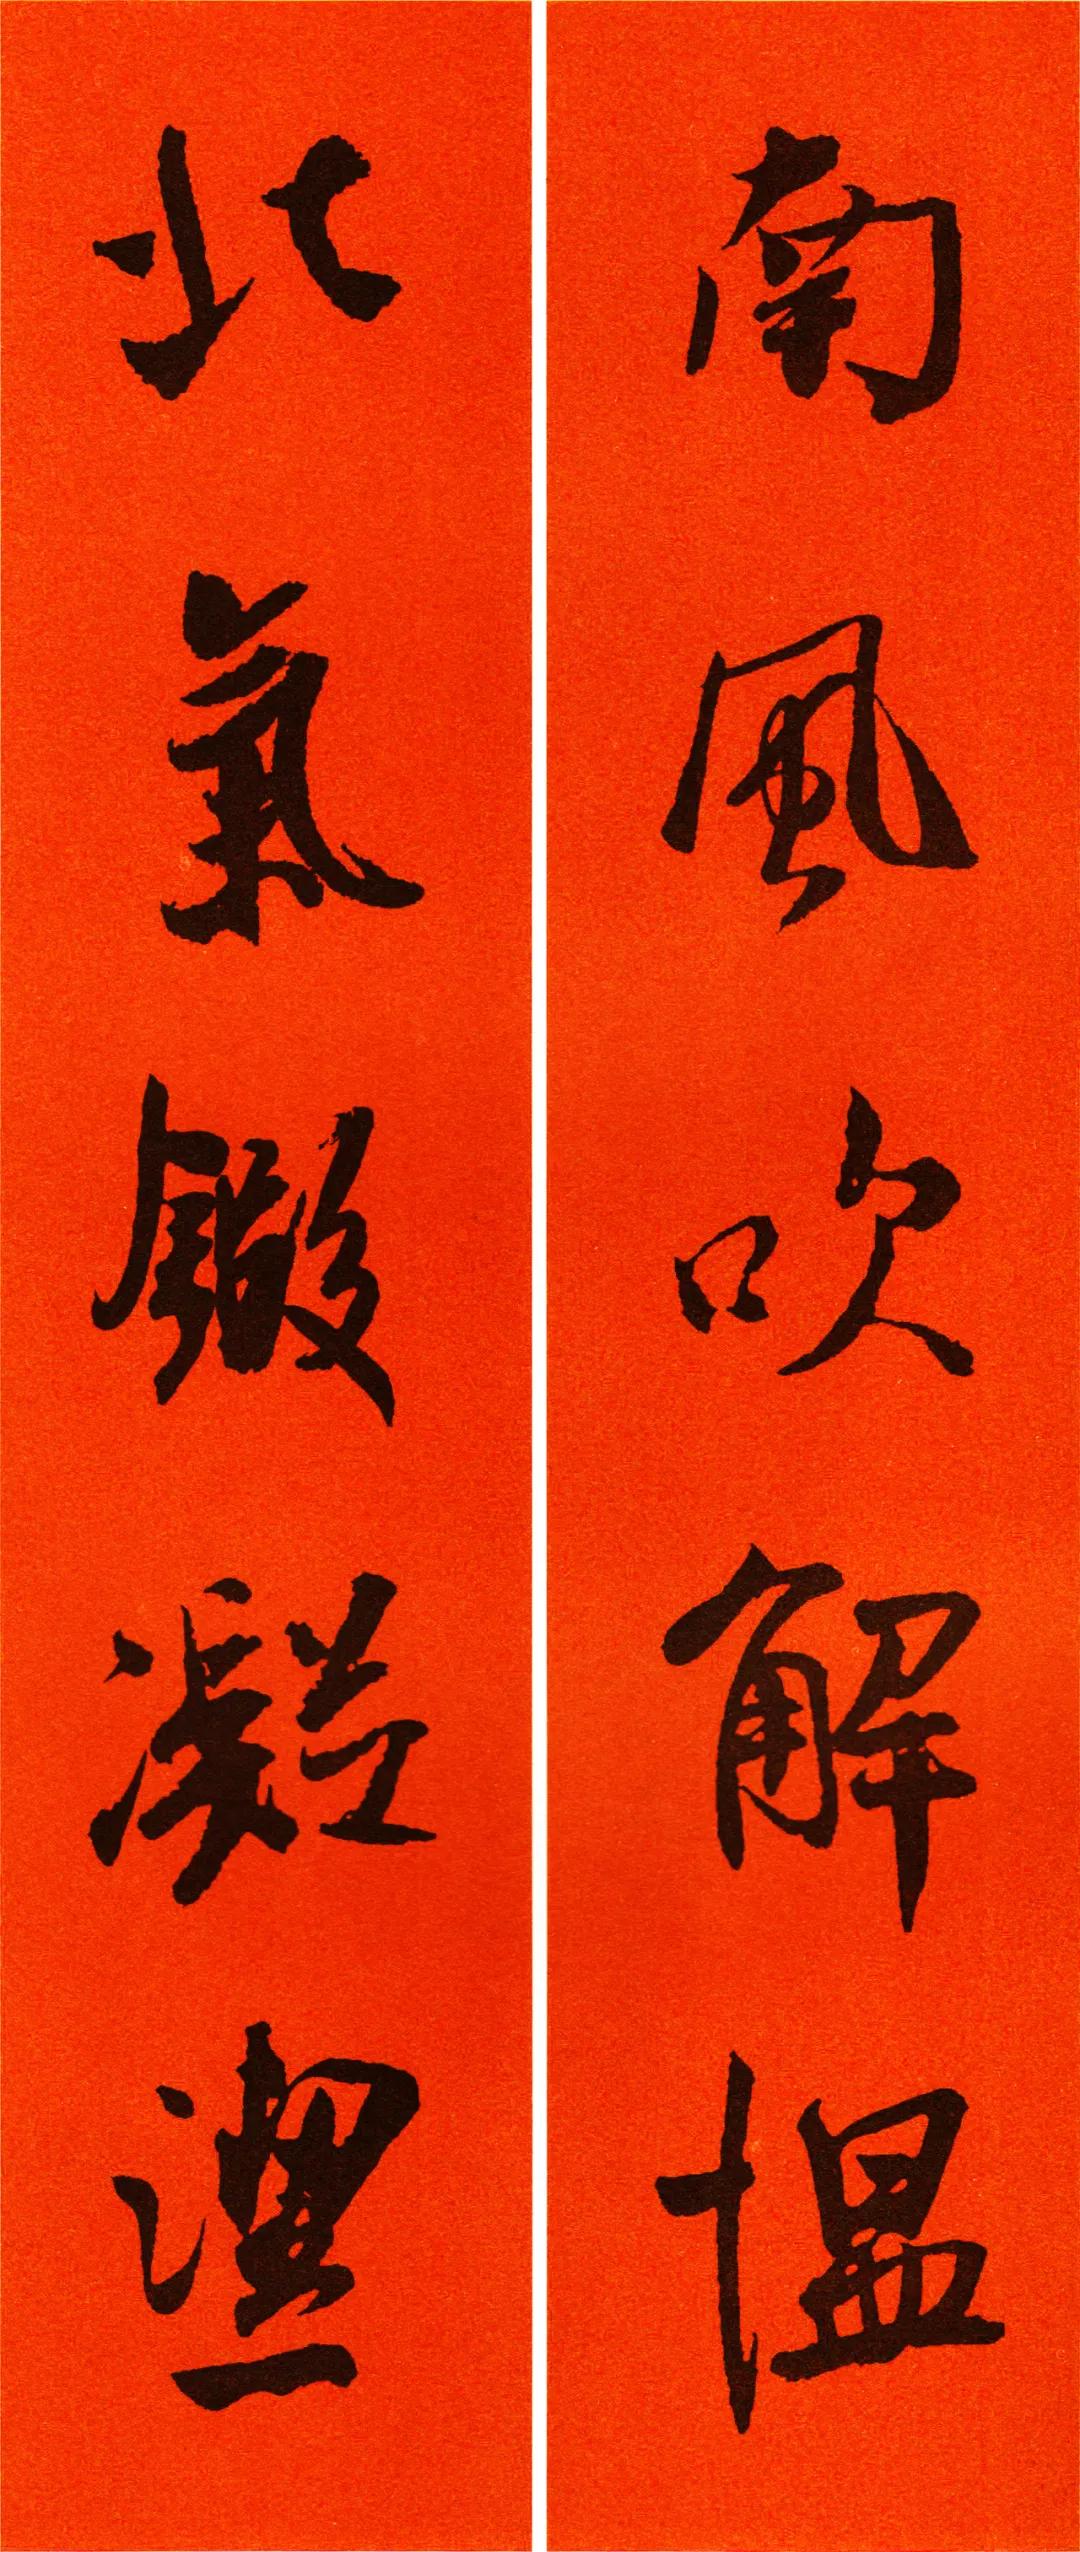 南風吹解愠
北氣鍛凝